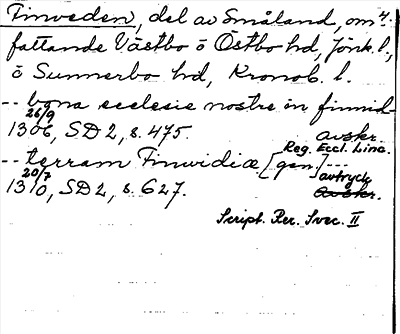 Finveden, del av Småland, om-
fattande Västbo o Östbo hd, Jönk. l,
o Sunnerbo hd, Kronob. l.
-- bona ecclesie nostre in finnid-
1306, 26/9 SD 2, s. 475. avskr.
Reg. Eccl. Linc.
-- terram Finvidiæ [gen.] ---
1310, 20/7 SD 2, s. 627. avtryck
Avskr.
Script. Rer. Svec. II